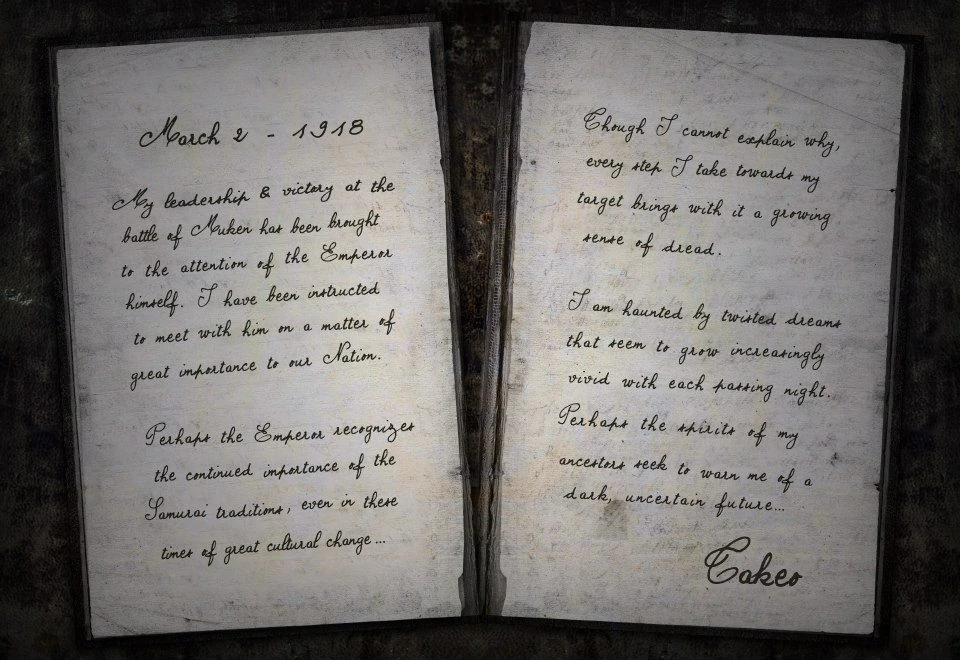 March 2 - 1918
My leadership & victory at the
battle of Muken has been brought
to the attention of the Emperor
himself. I have been instructed
to meet with him on a matter of
great importance to our Nation.
Perhaps the Emperor recognizes
the continued importance of the
Samurai traditions, even in these
times of great cultural change...
Though I cannot explain why,
every step I take towards my
target brings with it a growing
sense of dread.
I am haunted by twisted dreams
that seem to grow increasingly
vivid with each passing night.
Perhaps the spirits of my
ancestors seek to warn me of a
dark, uncertain future...
Takeo